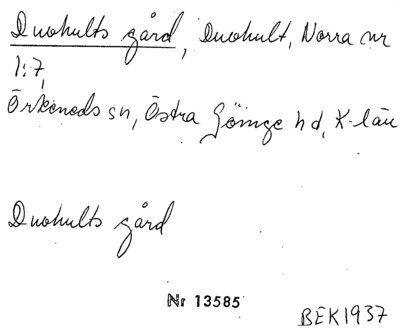 Duohults gård, Duohult, Norra nr
1:7,
Örkeneds sn, Östra Göinge hd, K-län
Duohults gård
Nr 13585
BEK1937